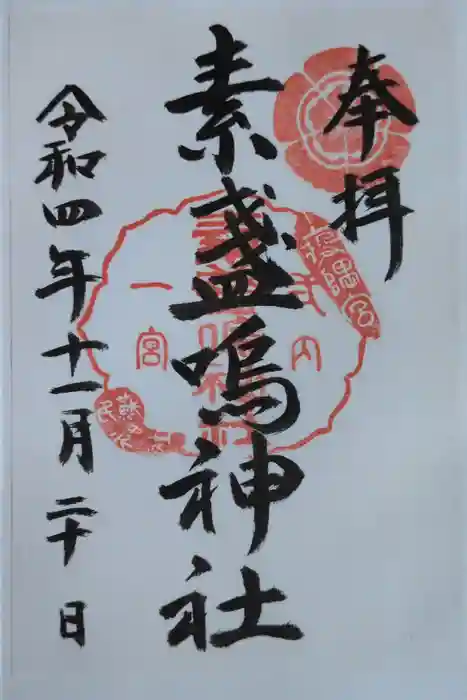 奉拝
素盞嗚神社
令和四年十一月二十日
式内
一宮
蘇民